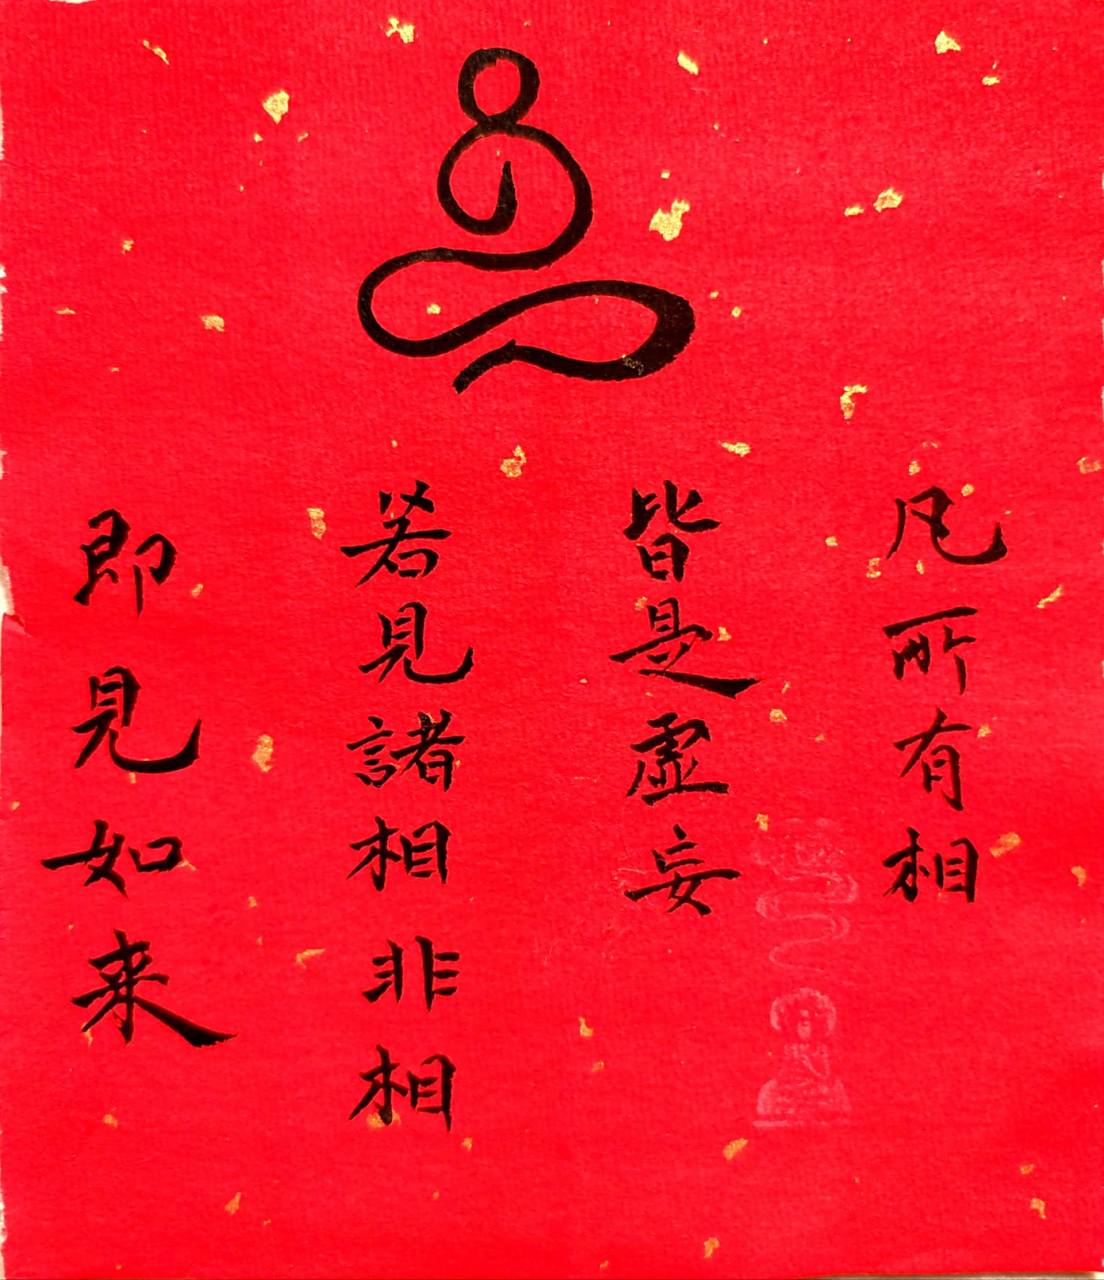 凡所有相
皆是虛妄
若見諸相非相
即見如来